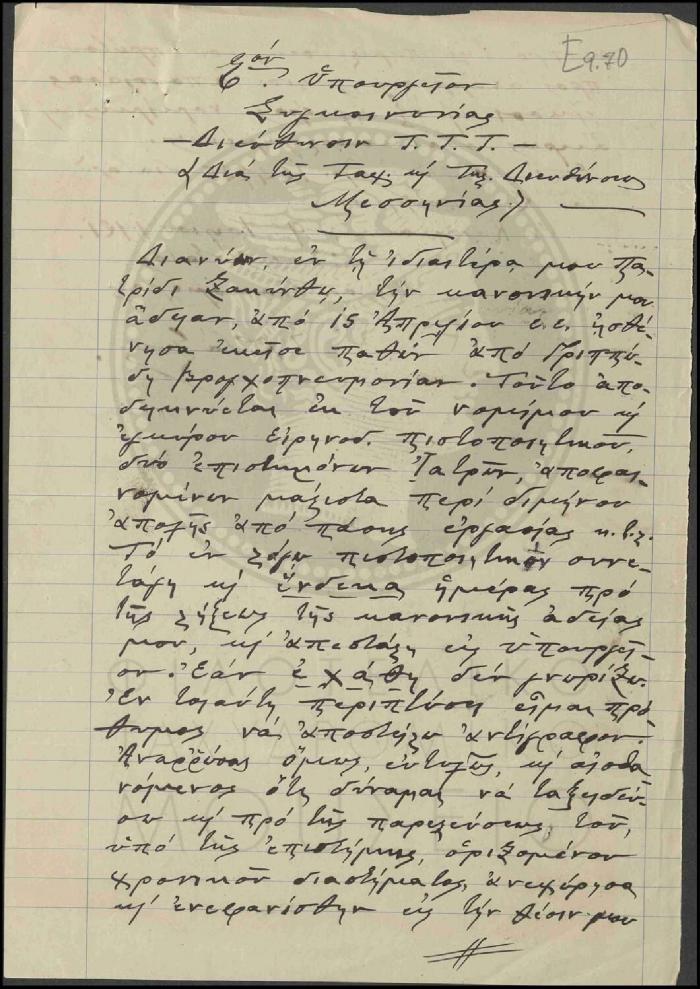 E9.70
Σ⁽όν⁾. Ὑπουργεῖον
Συγκοινωνίας
— Διεύθυνσιν Τ. Τ. Τ. —
(Διά τῆς Ταχ. κ Τηλ. Διευθύνσεως
Μεσσηνίας.)
Διανύων, ἐν τῇ ἰδιαιτέρᾳ μου Πα-
τρίδι Ζακύνθῳ, τήν κανονικήν μου
ἄδειαν, ἀπό 15 Ἀπριλίου ἑ.ἑ. ἠσθέ-
νησα ἐκεῖσε παθών ἀπό Γριππώ-
δη βρογχοπνευμονίαν. Τοῦτο ἀπο-
δεικνύεται ἐκ τοῦ νομίμου κ
ἐγκύρου εἰρηνοδ. πιστοποιητικοῦ,
δύο ἐπιστημόνων Ἰατρῶν, ἀποφαι-
νομένων μάλιστα περί διμήνου
ἀποχῆς ἀπό πάσης ἐργασίας κ.τ.λ.
Τό ἐν λόγῳ πιστοποιητικόν συνε-
τάγη κ ἕνδεκα ἡμέρας πρό
τῆς λήξεως τῆς κανονικῆς ἀδείας
μου, κ ἀπεστάλη εἰς Ὑπουργεῖ-
ον. Ἐάν ἐχάθη δέν γνωρίζω.
Ἐν τοιαύτῃ περιπτώσει εἶμαι πρό-
θυμος νά ἀποστείλω ἀντίγραφον.
Ἀναρρώσας ὅμως, εὐτυχῶς, κ αἰσθα
νόμενος ὅτι δύναμαι νά ταξειδεύ-
σω κ πρό τῆς παρελεύσεως, τοῦ,
ὑπό τῆς ἐπιστήμης, ὁριζομένου
χρονικοῦ διαστήματος, ἀνεχώρησα
κ ἐνεφανίσθην εἰς τήν θέσιν μου